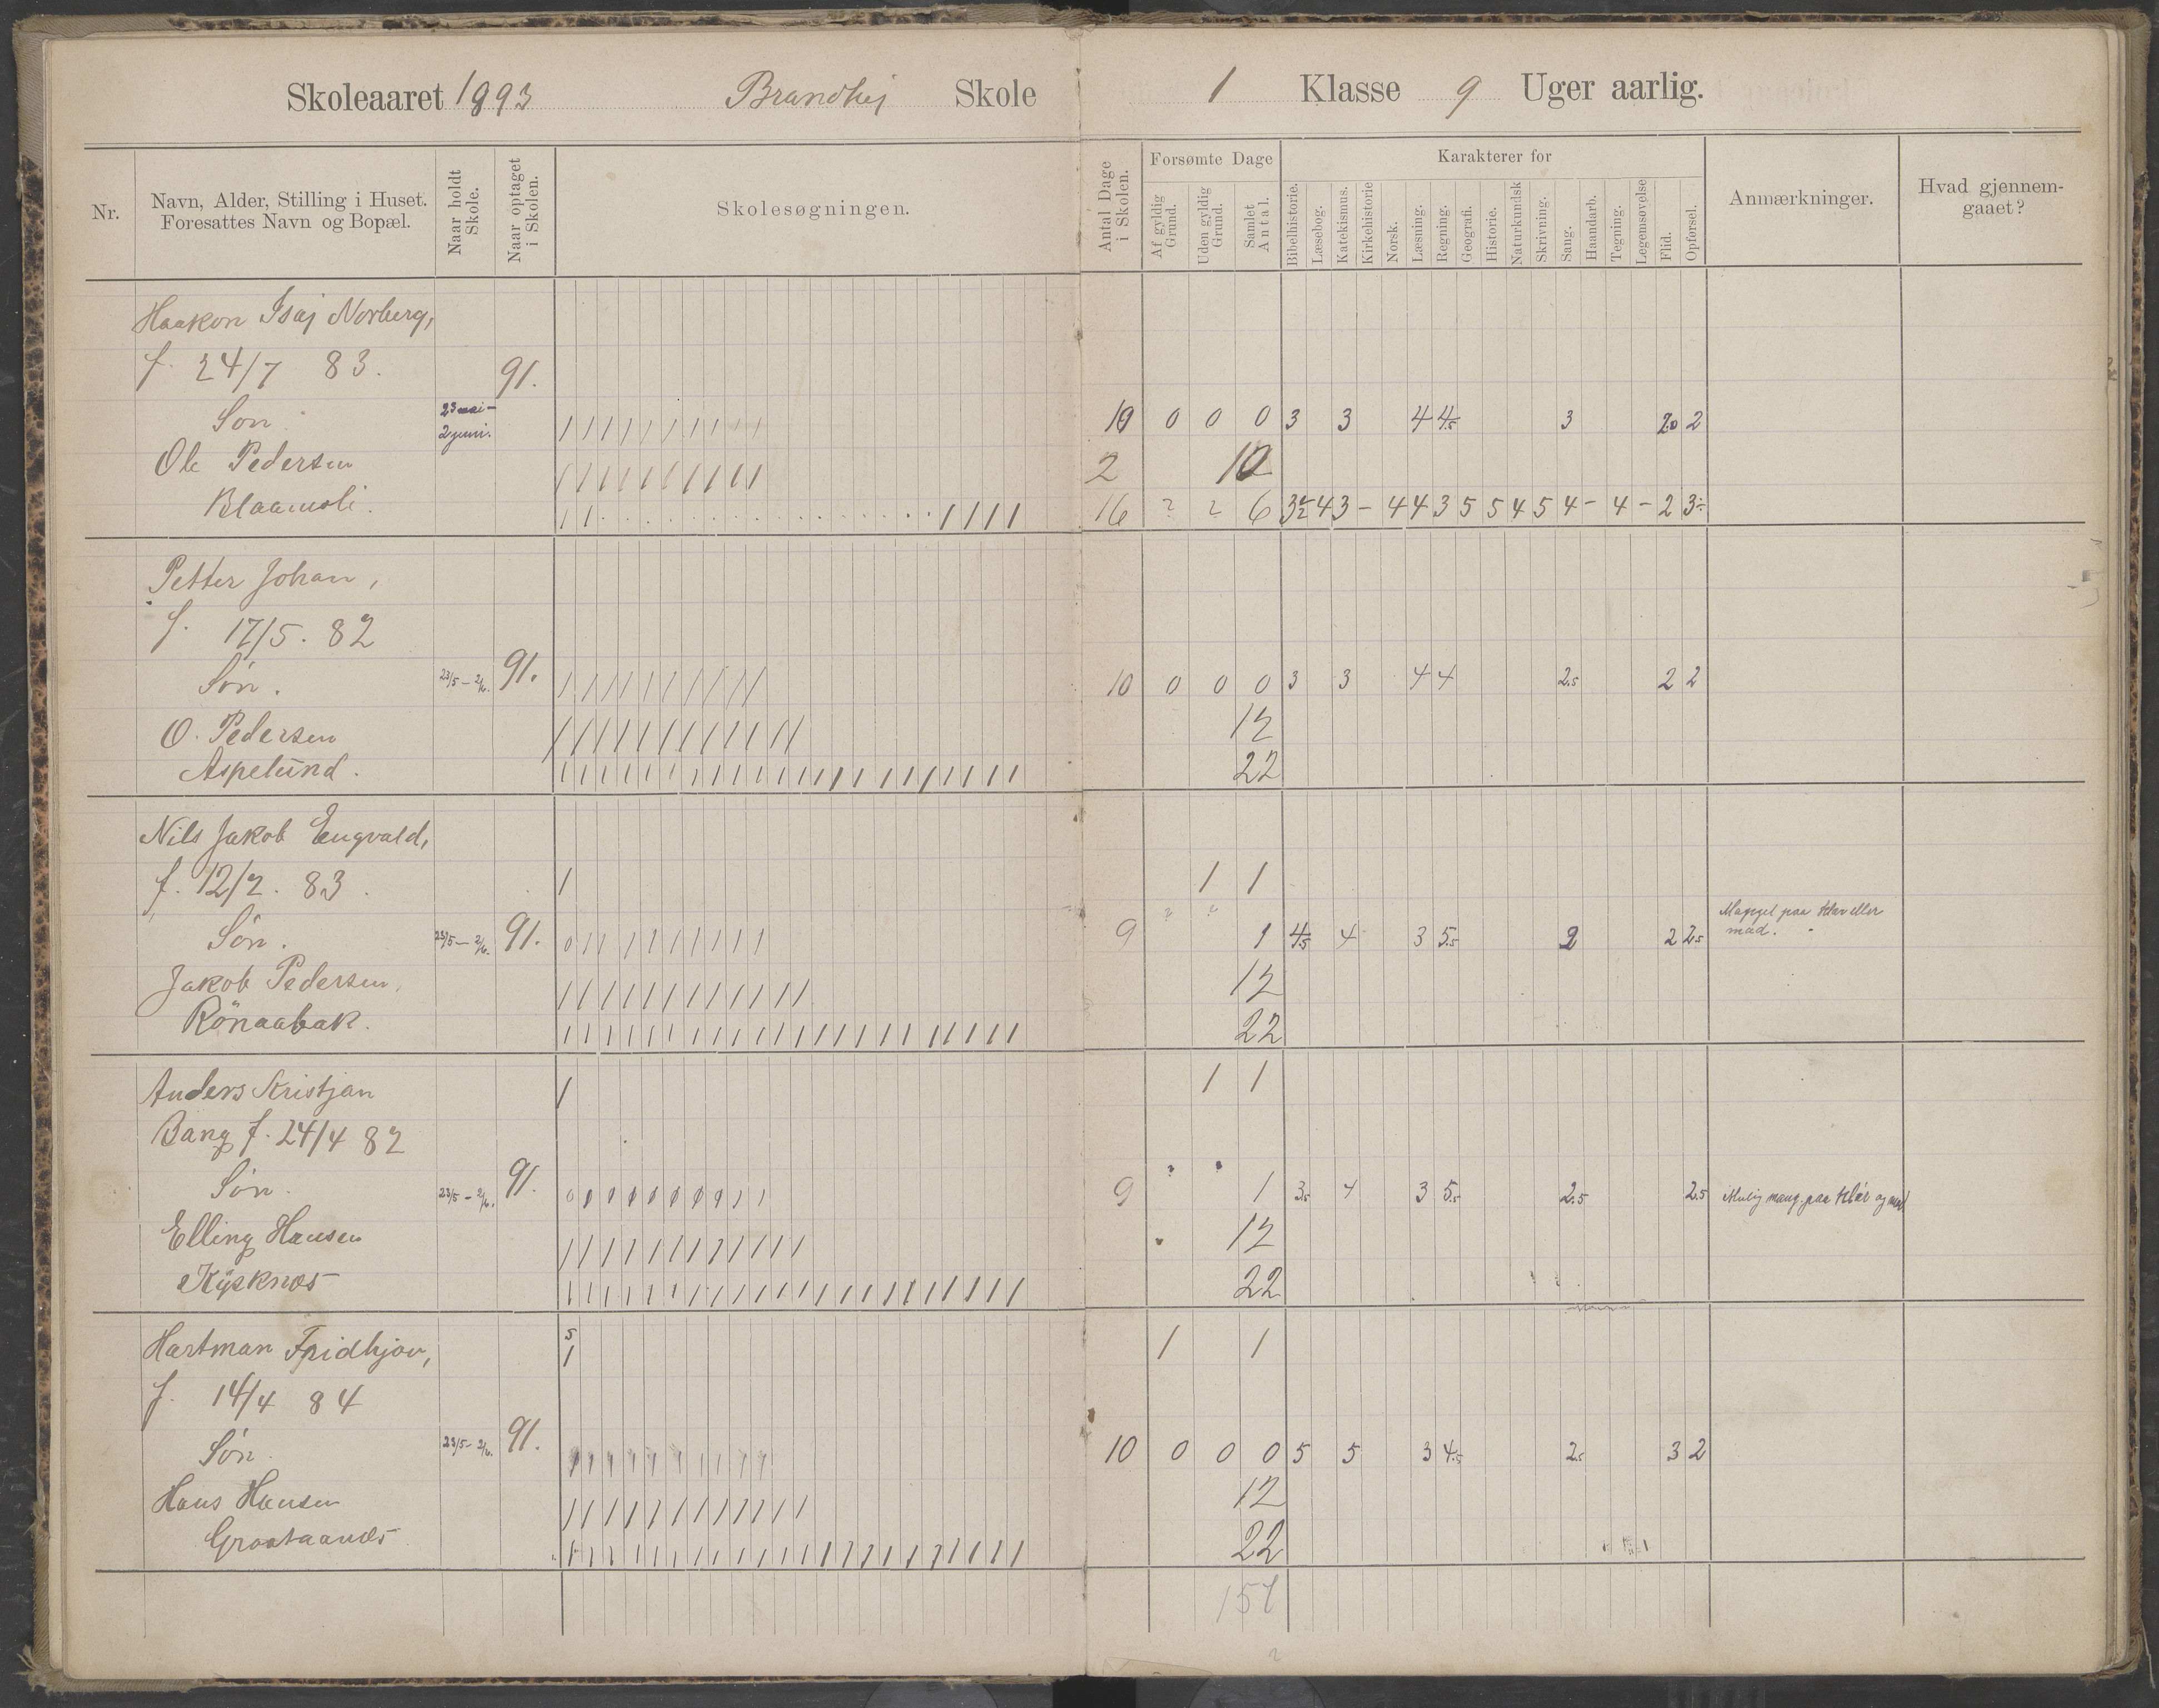 Skoleaaret 1893 Skole
1 Klasse 9 Uger aarlig.
Nr.
Navn, Alder, Stilling i Huset.
Foresattes Navn og Bopæl.
Naar holdt
Skole.
Naar optaget
i Skolen.
Skolesøgningen.
Antal Dage
i Skolen.
Forsømte Dage
Af gyldig
Grund.
Uden gyldig
Grund.
Samlet
Antal.
Karakterer for
Bibelhistorie.
Læsebog.
Katekismus.
Kirkehistorie
Norsk.
Læsning.
Regning.
Geografi.
Historie.
Naturkundsk
Skrivning.
Sang.
Haandarb.
Tegning.
Legemsøvelse
Flid.
Opførsel.
Anmærkninger.
Hvad gjennem-
gaaet?
Haakon Isaj Norberg,
f. 24/7 83.
91.
Søn 23 mai - 10 0 0 0 3 3 4 4.5 3 2.0 2
2 juni.
Ole Pedersen 2 10
Blaamoli. 16 ? ? 6 4 3 - 4 4 3 5 5 4 5 4 - 4 - 2 3
Petter Johan,
f. 17/5. 82
Søn. 23/5 - 2/6. 91. 10 0 0 0 3 3 4 4 2.5 2 2
O. Pedersen 12
Aspelund. 22
Nils Jakob Engvald,
f. 12/2. 83. 1 1 1
Søn. 23/5 - 2/6. 91. 9 1 4.5 4 3 5.5 2 2 2.5 Mangel paa klær eller
mad.
Jakob Pedersen, 12
Rönaabak. 22
Anders Kristjan 1 1 1
Bang f. 24/4 82
Søn. 23/5 - 2/6. 91. 9 1 3.5 4 3 5.5 2.5 2.5 Mulig mang. paa klær og mad
Elling Hansen 12
Kjeknæs 22
Hartman Fridhjov, 1 1
f. 14/4 84
Søn. 23/5 - 2/6. 91. 10 0 0 0 5 5 3 4.5 2.5 3 2
Hans Hansen 12
Graataanæs 22
157